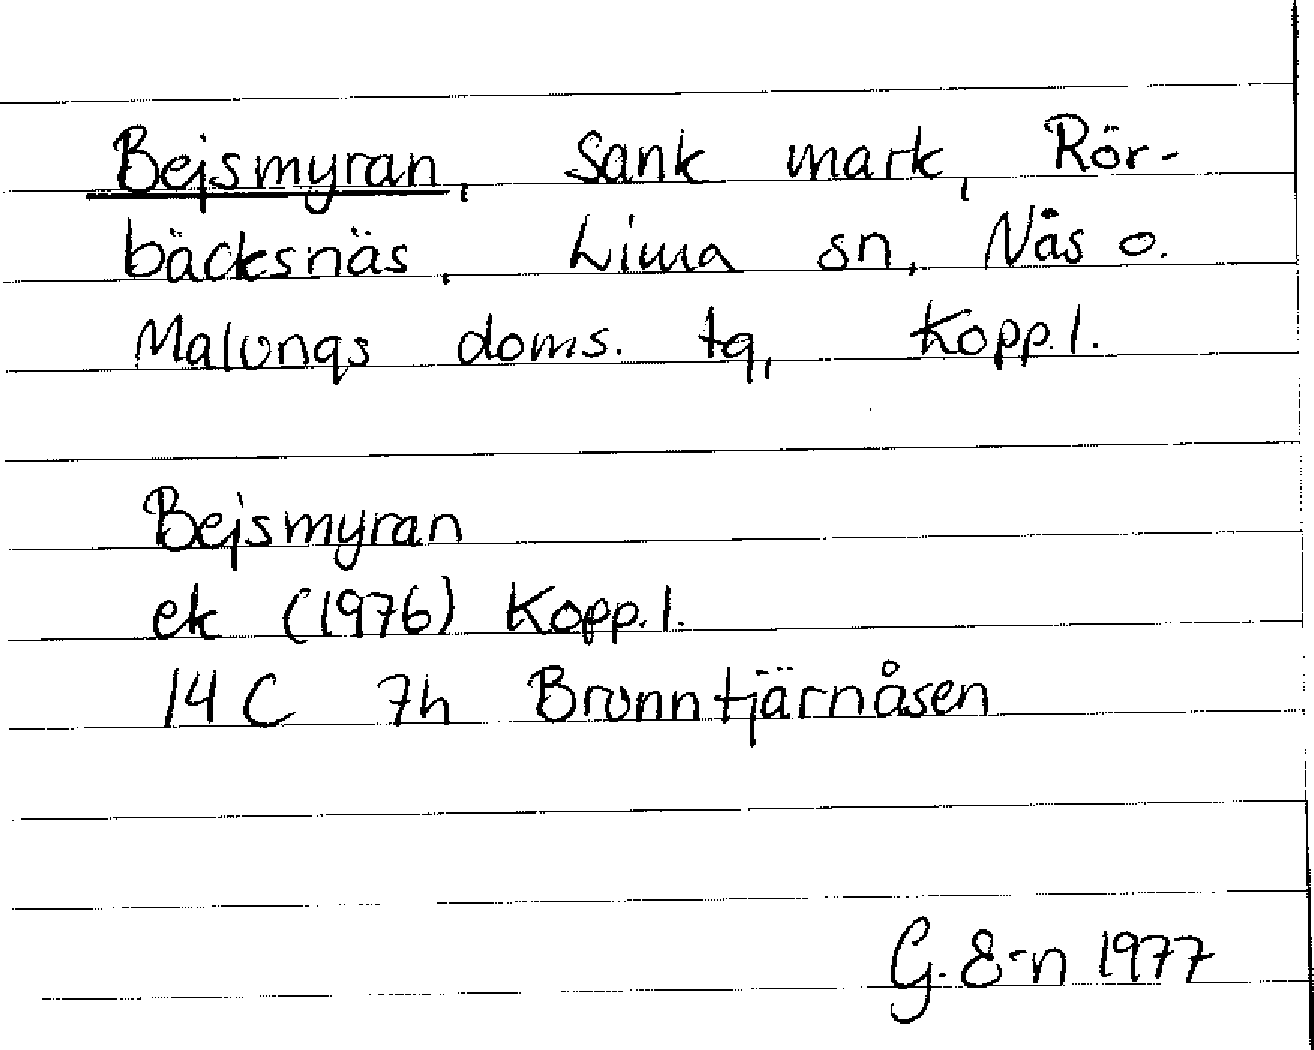 Bejsmyran, Sank mark, Rör-
bäcksnäs, Lima sn, Nås o.
Malungs doms. tg, Kopp.l.
Bejsmyran
ek (1976) Kopp.l.
14 C 7h Brunntjärnåsen
G. S-n 1977